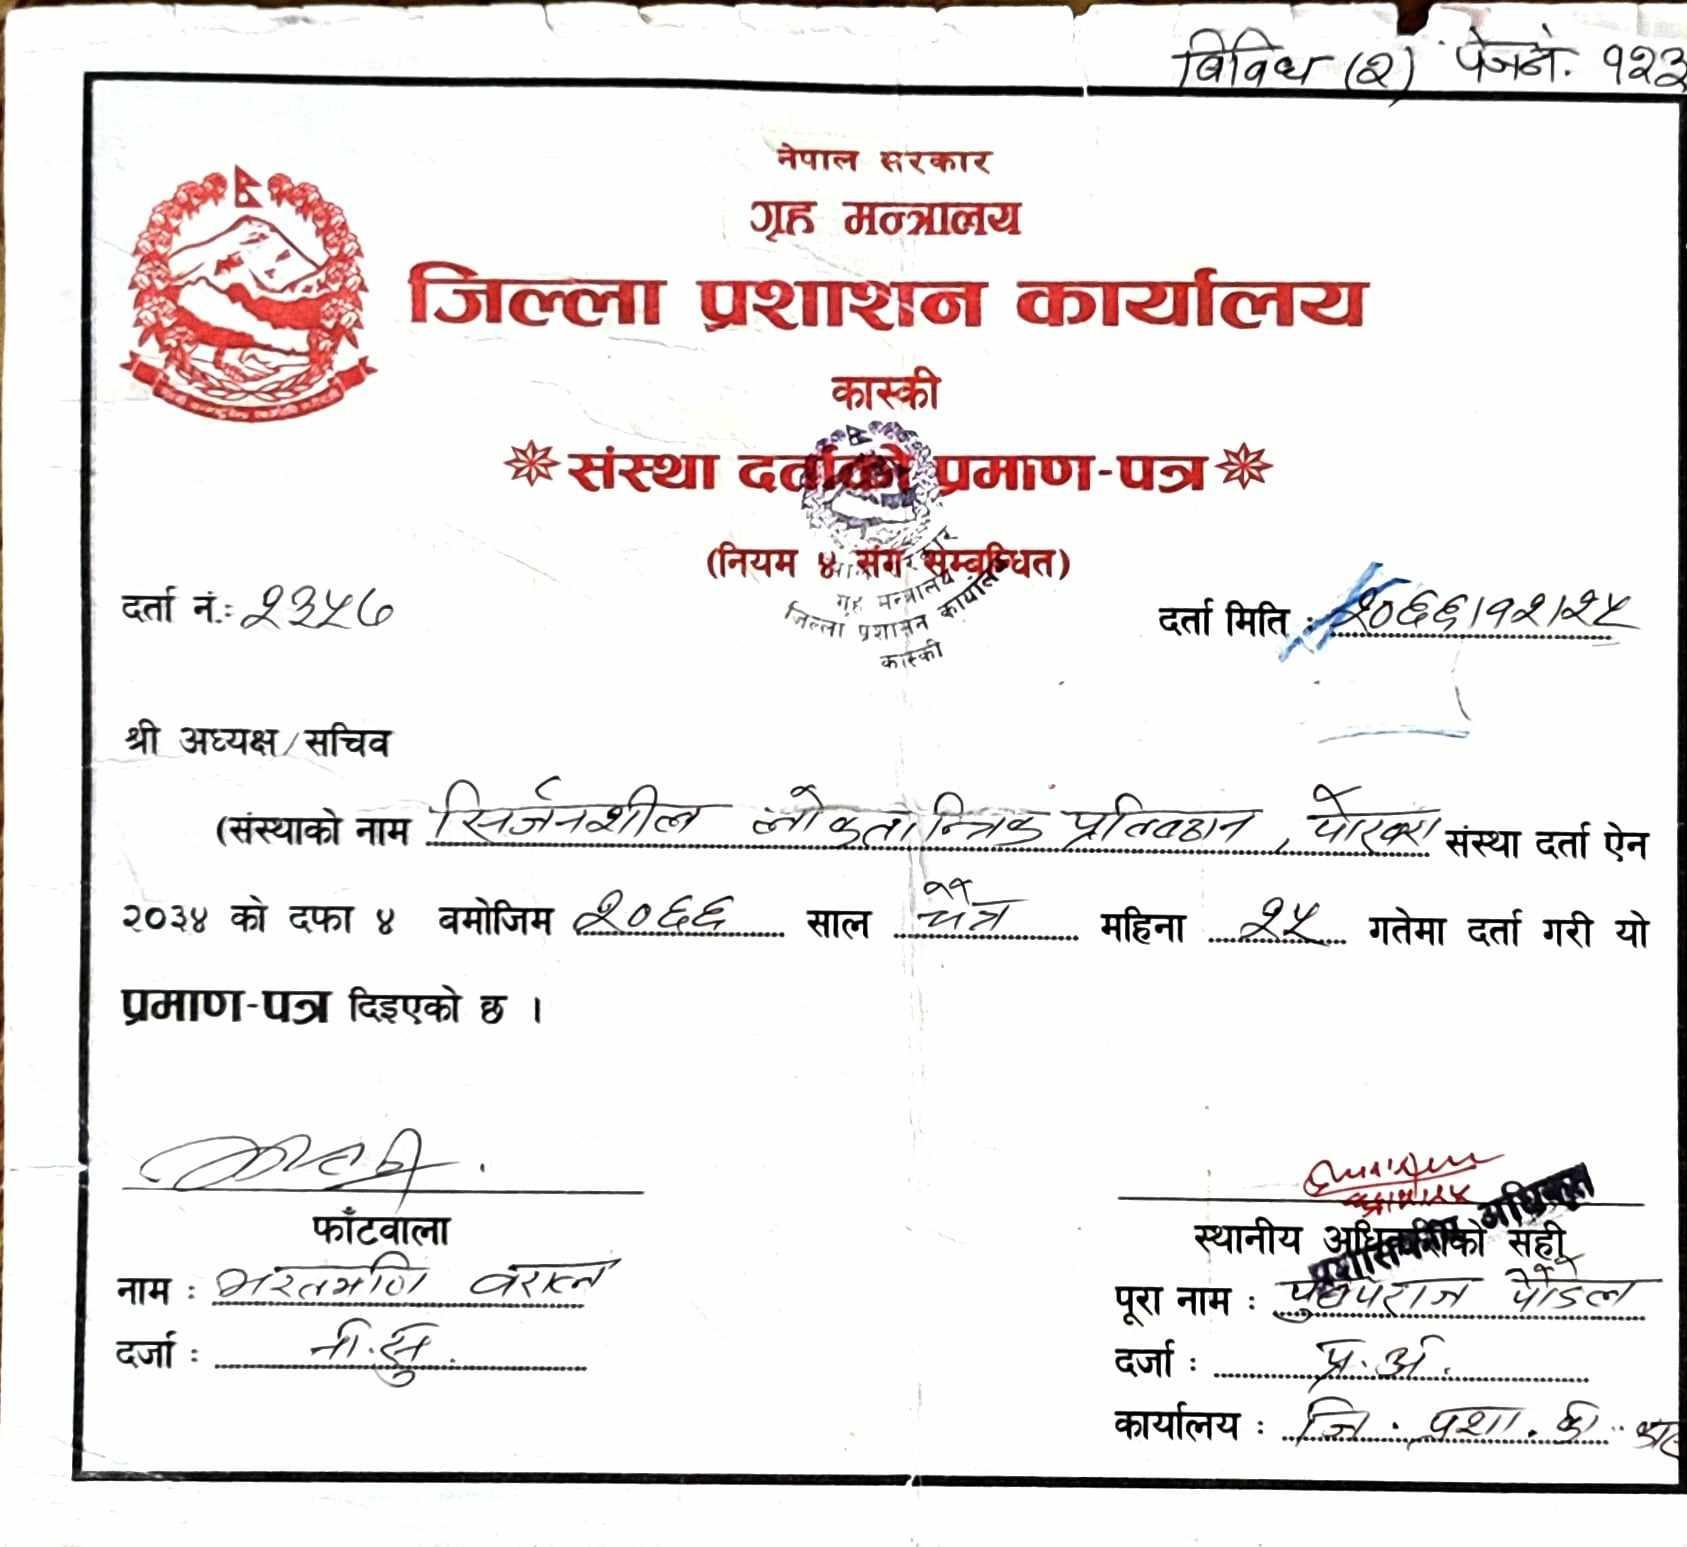 विविध (२) पेजनं. १२३
नेपाल सरकार
गृह मन्त्रालय
जिल्ला प्रशाशन कार्यालय
कास्की
संस्था दर्ताको प्रमाण-पत्र
(नियम ४ संग सम्बन्धित)
गृह मन्त्रालय
जिल्ला प्रशासन कार्यालय
कास्की
दर्ता नं.: २३५७ दर्ता मिति : २०६६।१२।२५
श्री अध्यक्ष/सचिव
(संस्थाको नाम सिर्जनशील लोकतान्त्रिक प्रतिष्ठान, पोखरा संस्था दर्ता ऐन
२०३४ को दफा ४ वमोजिम २०६६ साल चैत्र महिना २५ गतेमा दर्ता गरी यो
प्रमाण-पत्र दिइएको छ ।
फाँटवाला
स्थानीय अधिकारीको सही
प्रशासकीय अधिकृत
नाम : भरतमणि वराल
पूरा नाम : पुष्पराज पौडेल
दर्जा : ना.सु.
दर्जा : प्र.अ.
कार्यालय : जि. प्रशा. का.